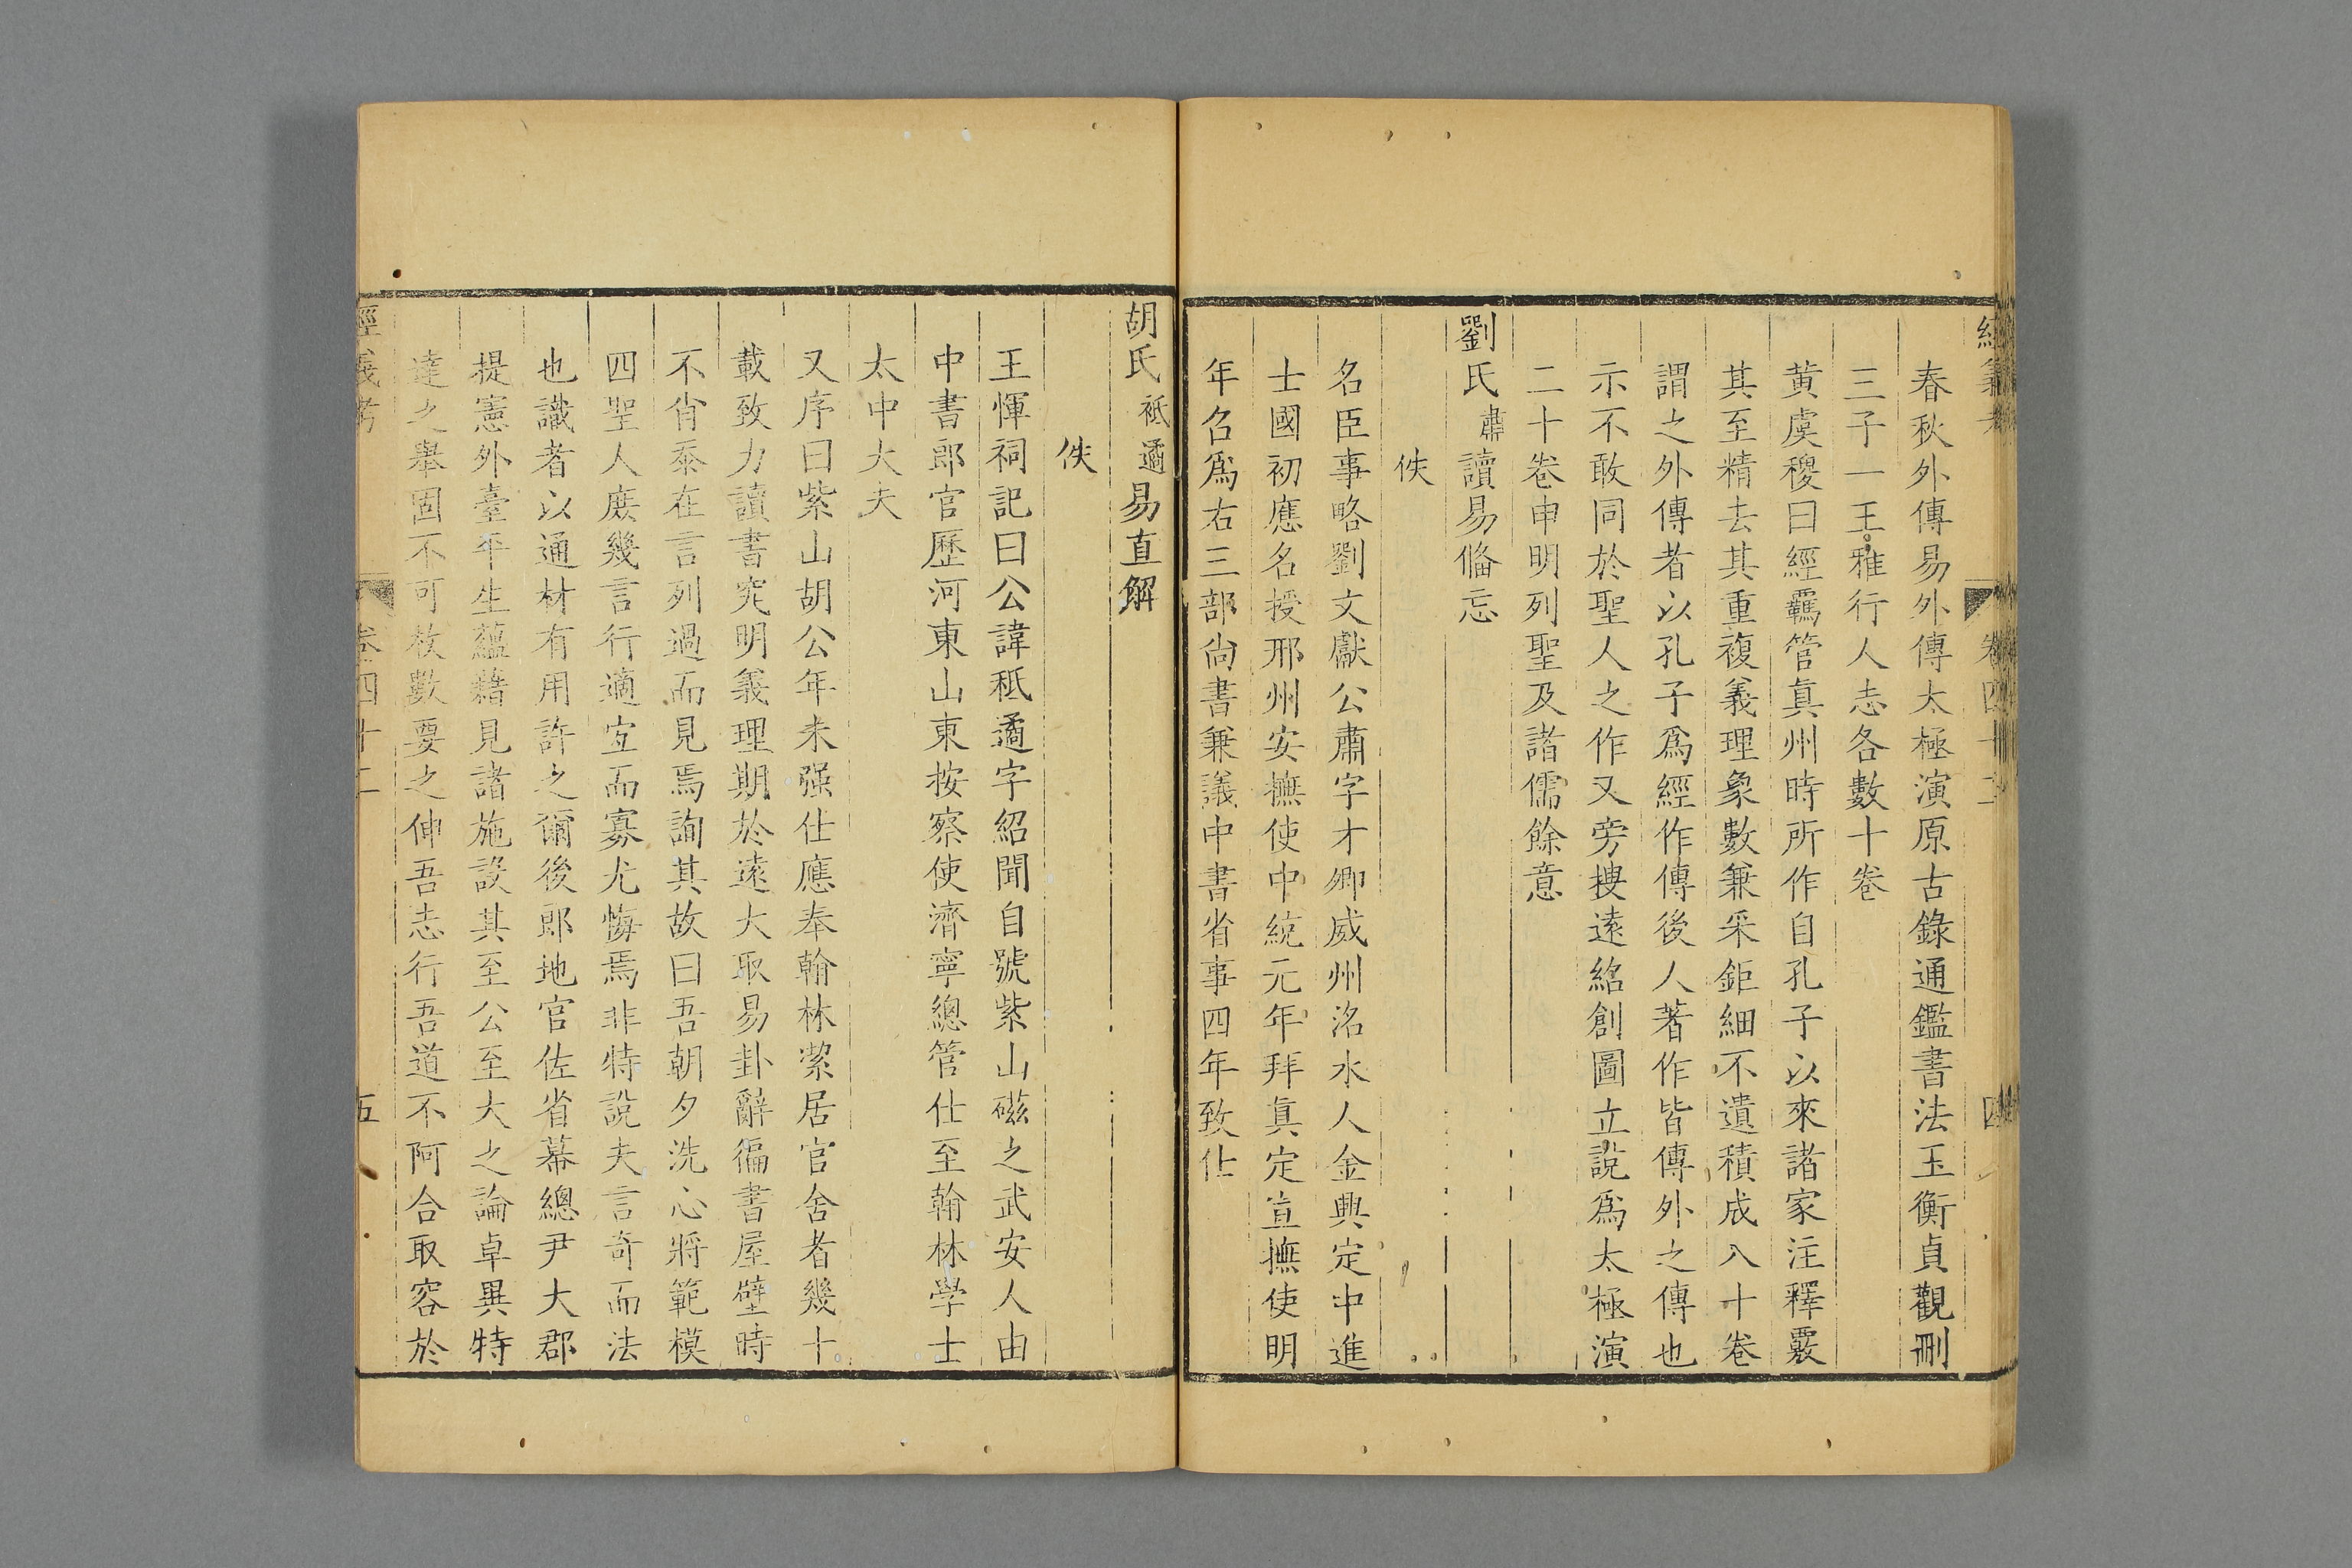 春秋外傳易外傳太極演原古錄通鑑書法玉衡貞觀刪
三子一王雅行人志各數十卷
黄虞稷曰經羈管真州時所作自孔子以來諸家注釋覈
其至精去其重複義理象數兼采鉅細不遺積成八十卷
謂之外傳者以孔子爲經作傳後人著作皆傳外之傳也
示不敢同於聖人之作又旁搜遠紹創圖立說爲太極演
二十卷申明列聖及諸儒餘意
劉氏肅讀易偹忘
佚
名臣事略劉文獻公肅字才卿威州洺水人金興定中進
士國初應名授邢州安撫使中統元年拜眞定宣撫使明
年召爲右三部尚書兼議中書省事四年致仕
胡氏祗遹易直解
佚
王惲祠記曰公諱祗遹字紹聞自號紫山磁之武安人由
中書郎官歷河東山東按察使濟寧總管仕至翰林學士
太中大夫
又序曰紫山胡公年未强仕應奉翰林潔居官舍者幾十
載致力讀書究明義理期於遠大取易卦辭徧書屋壁時
不肖忝在言列過而見焉詢其故曰吾朝夕洗心將範模
四聖人庶幾言行適宜而寡尤悔焉非特說夫言奇而法
也識者以通材有用許之爾後郎地官佐省幕總尹大郡
提憲外臺平生蘊藉見諸施設其至公至大之論卓異特
達之舉固不可枚數要之伸吾志行吾道不阿合取容於
經義考
卷四十二
五